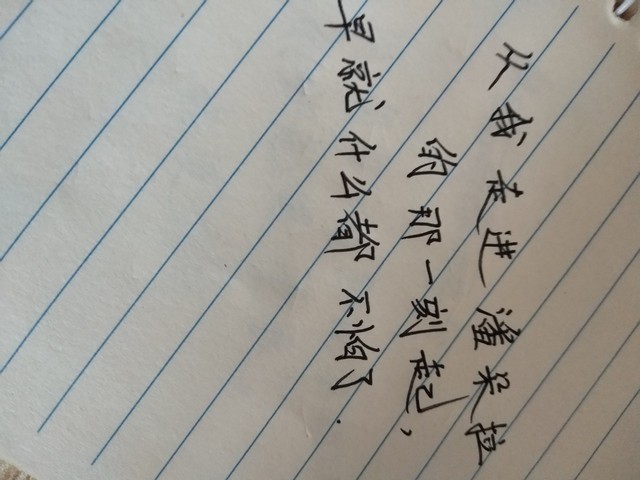 从我走进潘朵拉
的那一刻起,
早就什么都不怕了.